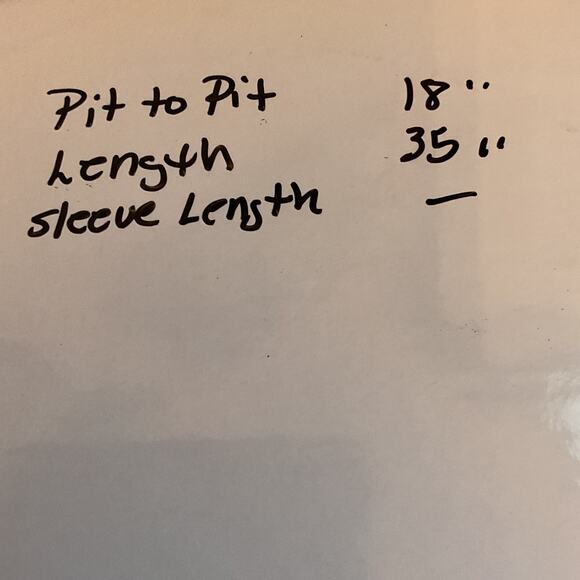 Pit to Pit 18"
Length 35"
Sleeve Length —